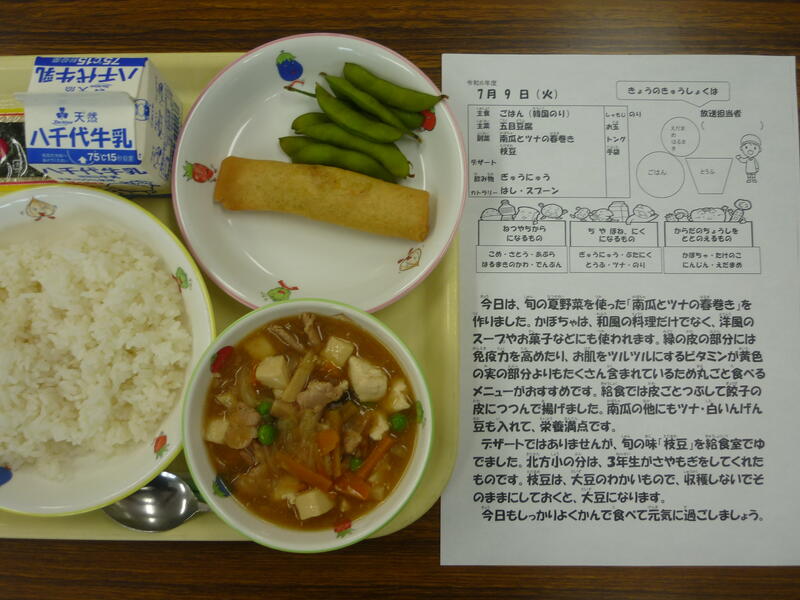 75℃15秒殺菌
八千代牛乳
天然
八千代牛乳
75℃15秒殺菌
八千代牛乳
令和6年度
7月 9日（火）
きょうのきゅうしょくは
主食 ごはん（韓国のり）
主菜 五目豆腐
副菜 南瓜とツナの春巻き
枝豆
デザート
飲み物 ぎゅうにゅう
カトラリー はし・スプーン
しゃもじ のり
お玉
トング
手袋
放送担当者
（ ）
えだまめ
はるまき
ごはん
とうふ
ねつやちから
になるもの
ち や ほね、にく
になるもの
からだのちょうしを
ととのえるもの
こめ・さとう・あぶら
はるまきのかわ・でんぷん
ぎゅうにゅう・ぶたにく
とうふ・ツナ・のり
かぼちゃ・たけのこ
にんじん・えだまめ
今日は、旬の夏野菜を使った「南瓜とツナの春巻き」を
作りました。かぼちゃは、和風の料理だけでなく、洋風の
スープやお菓子などにも使われます。緑の皮の部分には
免疫力を高めたり、お肌をツルツルにするビタミンが黄色
の実の部分よりもたくさん含まれているため丸ごと食べる
メニューがおすすめです。給食では皮ごとつぶして餃子の
皮につつんで揚げました。南瓜の他にもツナ・白いんげん
豆も入れて、栄養満点です。
デザートではありませんが、旬の味「枝豆」を給食室でゆ
でました。北方小の分は、3年生がさやもぎをしてくれた
ものです。枝豆は、大豆のわかいもので、収穫しないでそ
のままにしておくと、大豆になります。
今日もしっかりよくかんで食べて元気に過ごしましょう。